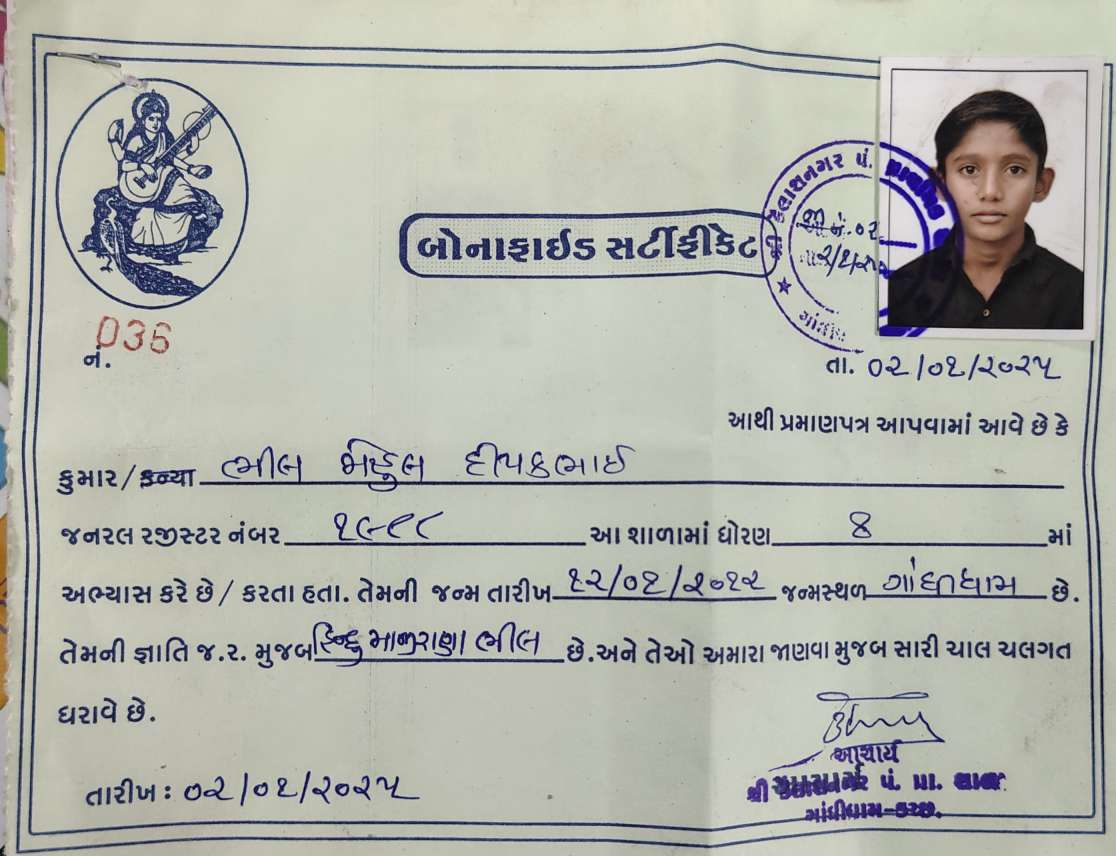 શ્રી કૈલાશનગર પં.
બોનાફાઈડ સર્ટીફીકેટ
036
નં.
તા. ૦૨/૦૧/૨૦૨૫
આથી પ્રમાણપત્ર આપવામાં આવે છે કે
કુમાર / કન્યા ભીલ મેહુલ દીપકભાઈ
જનરલ રજીસ્ટર નંબર ૧૯૧૮ આ શાળામાં ધોરણ ૪ માં
અભ્યાસ કરે છે / કરતા હતા. તેમની જન્મ તારીખ ૧૨/૦૧/૨૦૧૨ જન્મસ્થળ ગાંધીધામ છે.
તેમની જ્ઞાતિ જ.ર. મુજબ હિન્દુ માજીરાણા ભીલ છે. અને તેઓ અમારા જાણવા મુજબ સારી ચાલ ચલગત
ધરાવે છે.
આચાર્ય
શ્રી કૈલાશનગર પં. પ્રા. શાળા
ગાંધીધામ-કચ્છ.
તારીખ : ૦૨/૦૧/૨૦૨૫